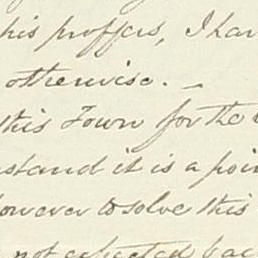 his proffers, I har
otherwise. _
this Town for the
stand it is a poin
however to solve this
not expected bac